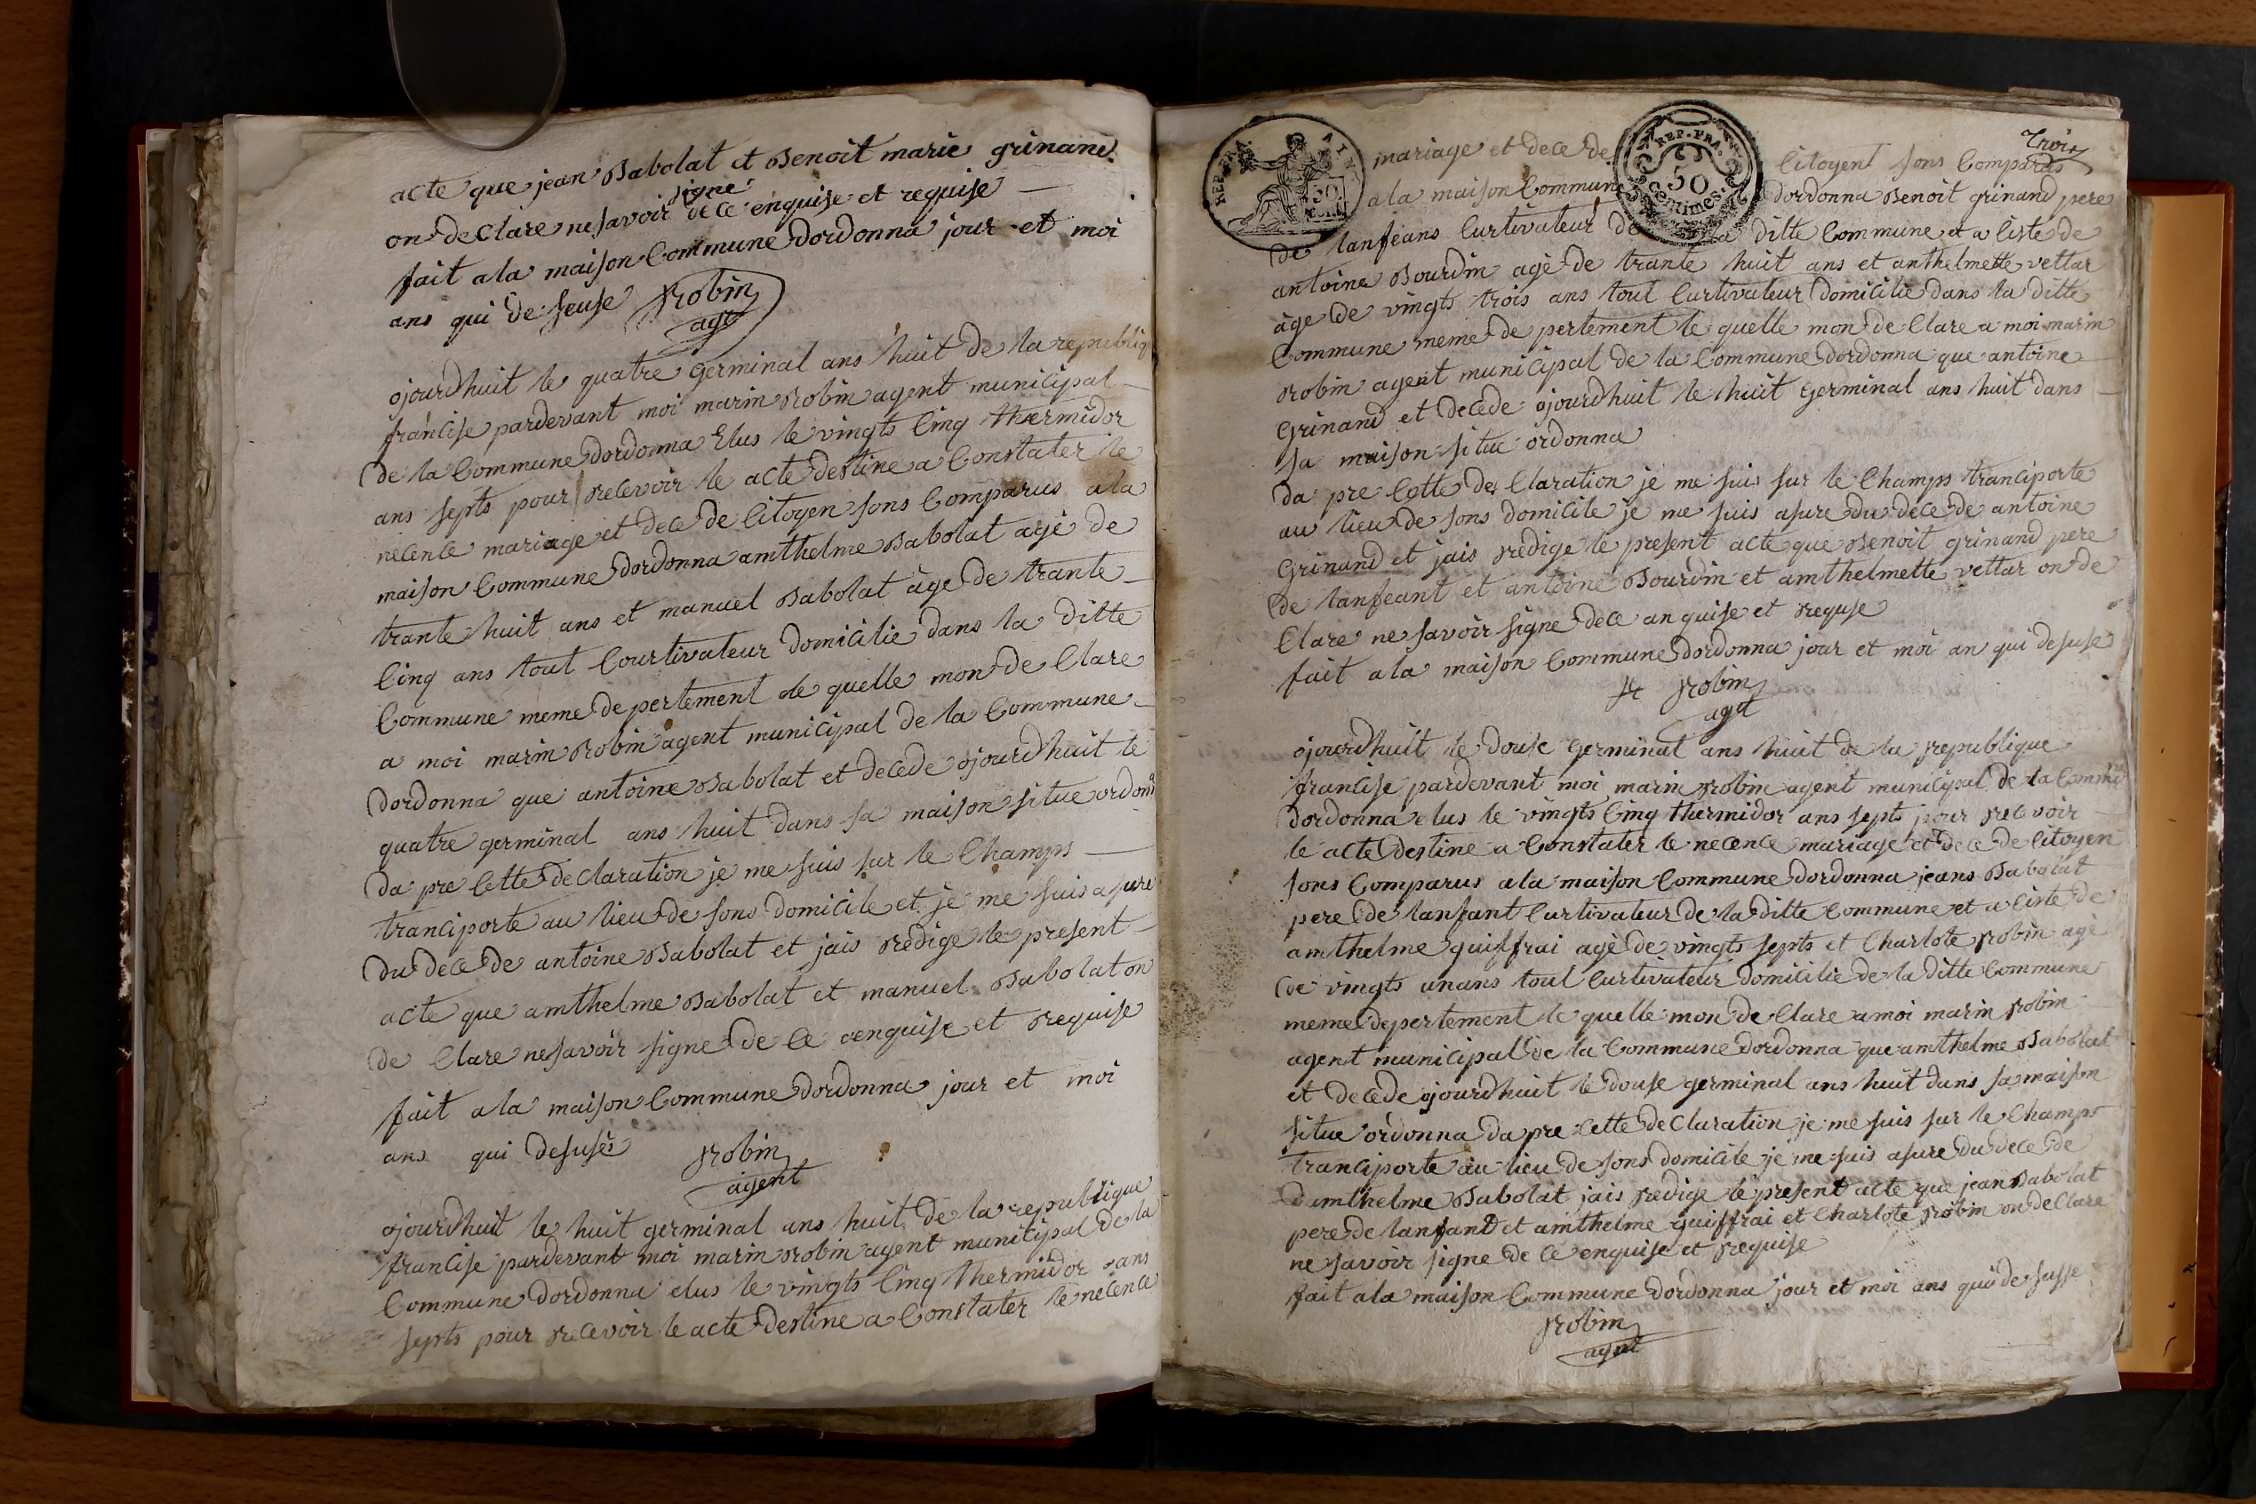 acte que jean Babolat et Benoit marie grinand
signe
on declare ne savoir de ce enquise et requise
fait a la maison Commune dordonna jour et moi
ans qui de seuse Robin
agt
ojourdhuit le quatre germinal ans huit de la republiq
francise pardevant moi marin Robin agent municipal
de la Commune dordonna Elus le vingts Cinq thermidor
ans septs pour recevoir le acte destine a Constater le
necence mariage et dece de Citoyen sons Comparus a la
maison Commune dordonna amthelme Babolat agé de
trante huit ans et manuel Babolat àge de trante
Cinq ans tout Courtivateur domicilie dans la ditte
Commune meme depertement le quelle mon de Clare
a moi marin Robin agent municipal de la Commune
dordonna que antoine Babolat et decede ojourdhuit le
quatre germinal ans huit dans sa maison situe ordona
da pre Cette declaration je me suis sur le Champs
tranciporte au lieu de sons domicile et je me suis asure
du dece de antoine Babolat et jais redige le present
acte que amthelme Babolat et manuel Babolat on
de Clare ne savoir signe de ce enquise et requise
fait a la maison Commune dordonna jour et moi
ans qui desuses Robin
agent
ojourdhuit le huit germinal ans huit de la republique
francise pardevant moi marin Robin agent municipal de la
Commune dordonna elus le vingts Cinq thermidor ans
septs pour recevoir le acte destine a Constater le necence
Trois
REP. FRA.
REP. FRA.
50
Centimes.
mariage et dece de Citoyent sons Comparus
a la maison Commune dordonna Benoit grinand pere
de lanfeans Curtivateur de la ditte Commune et a Ciste de
antoine Bourdin agé de trante huit ans et anthelmette vettar
àge de vingts trois ans tout Curtivateur domicilie dans la ditte
Commune meme de pertement le quelle mon de Clare a moi marin
Robin agent municipal de la Commune dordonna que antoine
grinand et decede ojourdhuit le huit germinal ans huit dans
sa maison situe ordonna
da pre Cette de Claration je me suis sur le Champs tranciporte
au lieu de sons domicile je me suis asure du dece de antoine
grinand et jais redige le present acte que Benoit grinand pere
de lanfeant et antoine Bourdin et amthelmette vettar on de
Clare ne savoir signe de ce anquise et requse
fait a la maison Commune dordonna jour et moi an qui desuse
Robin
agt
ojourdhuit le douse germinal ans huit de la republique
francise pardevant moi marin Robin agent municipal de la Commu
dordonna elus le vingts Cinq thermidor ans septs pour recevoir
le acte destine a Constater le necence mariage et dece de Citoyen
sons Comparus a la maison Commune dordonna jeans Babolat
pere de lanfant Curtivateur de la ditte Commune et a Ciste de
amthelme guiffrai agé de vingts septs et Charlote Robin agé
de vingts unans tout Curtivateur domicilie de la ditte Commune
meme depertement le quelle mon de Clare a moi marin Robin
agent municipal de la Commune dordonna que amthelme Babolat
et decede ojourdhuit le douse germinal ans huit dans sa maison
situe ordonna da pre Cette de Claration je me suis sur le Champs
tranciporte au lieu de sons domicile je me suis asure du dece de
damthelme Babolat jais redige le present acte que jean Babolat
pere de lanfant et amthelme guiffrai et Charlote Robin on de Clare
ne savoir signe de ce enquise et requise
fait a la maison Commune dordonna jour et moi ans qui de susse
Robin
agnt